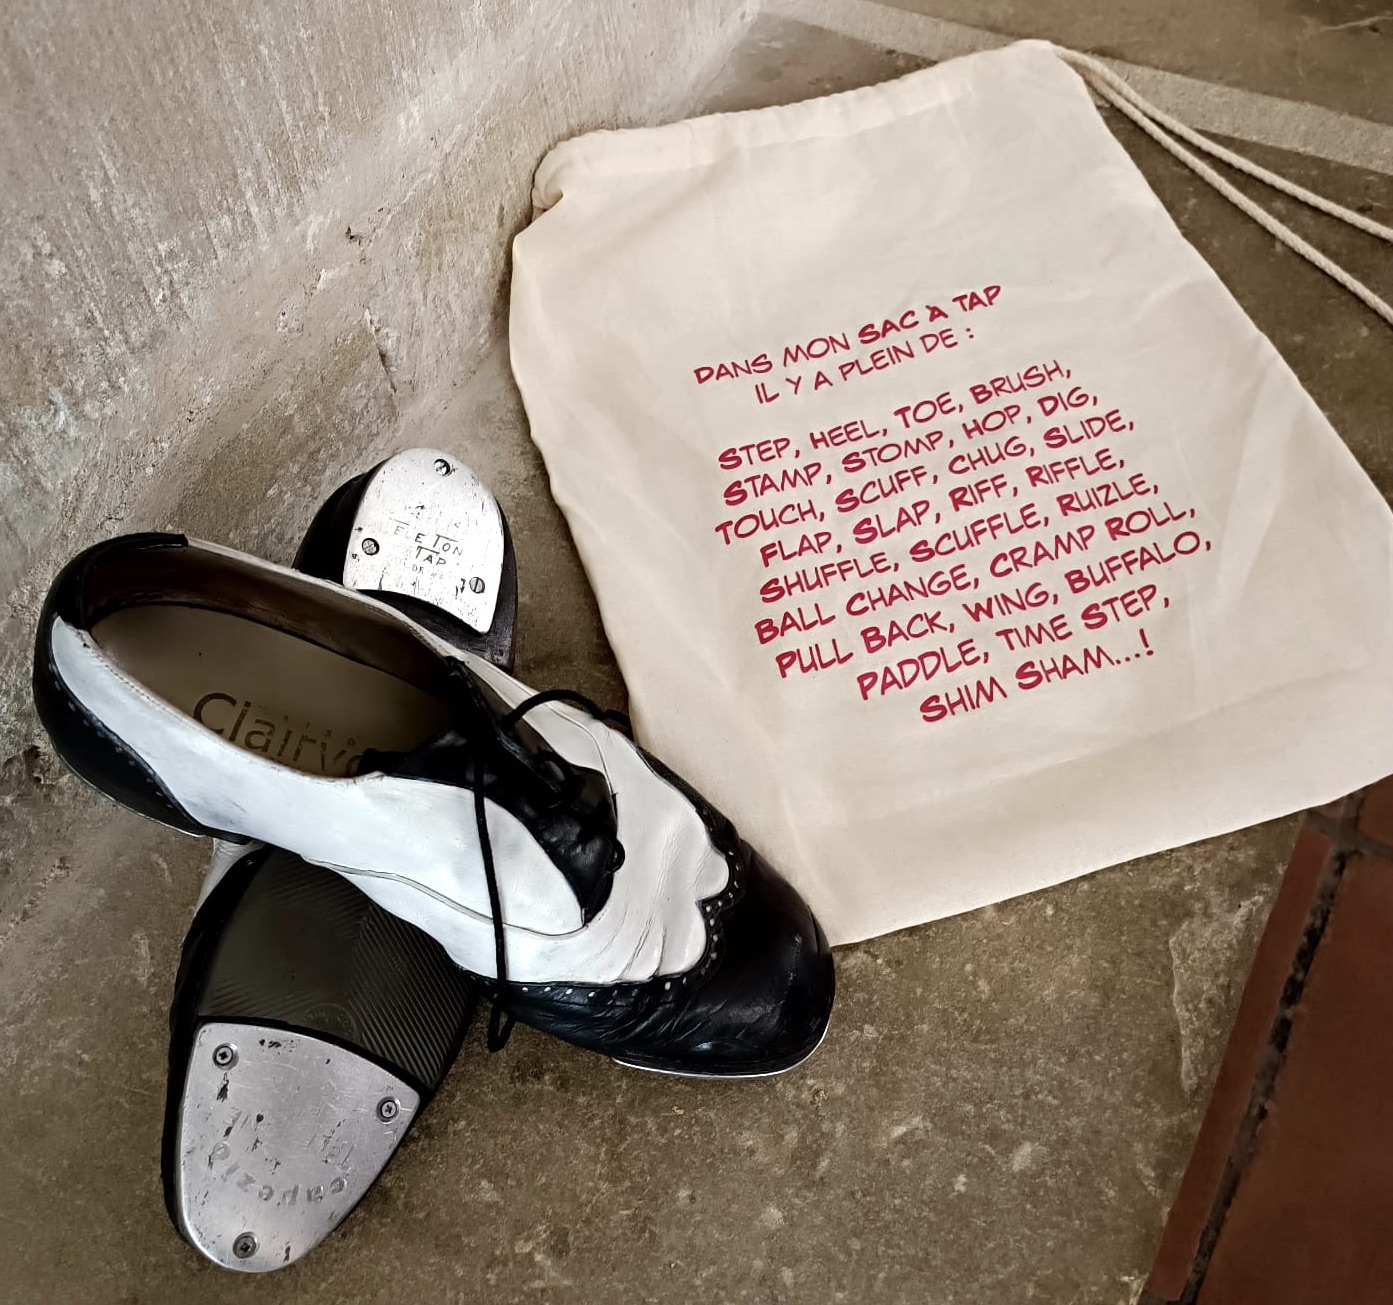 DANS MON SAC À TAP
IL Y A PLEIN DE :
STEP, HEEL, TOE, BRUSH,
STAMP, STOMP, HOP, DIG,
TOUCH, SCUFF, CHUG, SLIDE,
FLAP, SLAP, RIFF, RIFFLE,
SHUFFLE, SCUFFLE, RUIZLE,
BALL CHANGE, CRAMP ROLL,
PULL BACK, WING, BUFFALO,
PADDLE, TIME STEP,
SHIM SHAM...!
TELE TONE
TAP
Clairvo
capezio